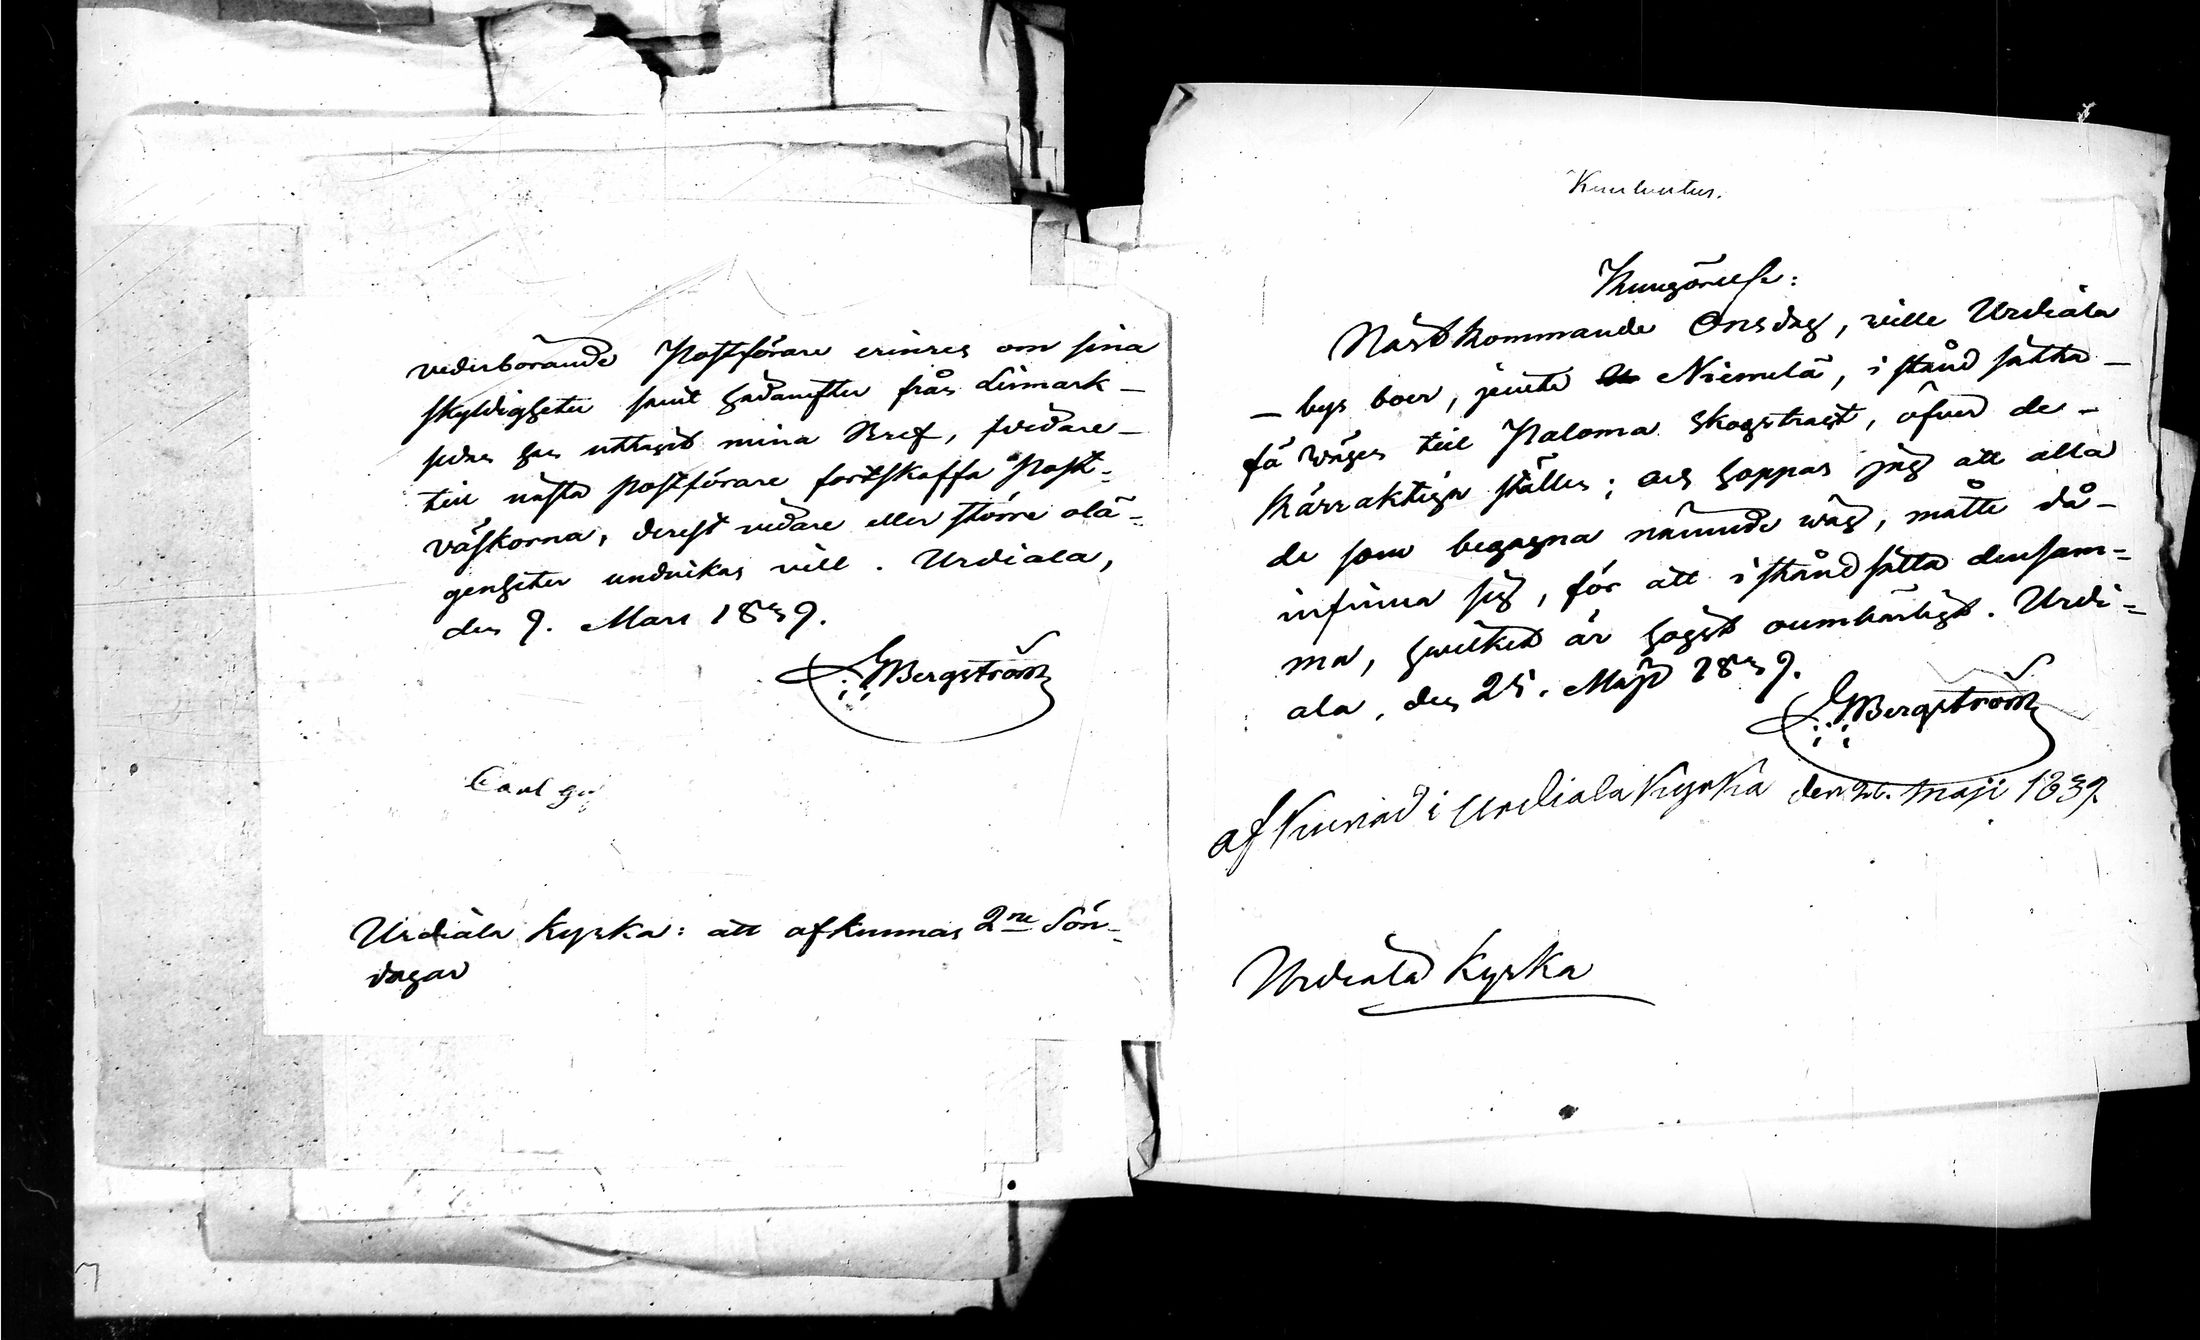 vederbörande Postförare erinras om sina
skyldigheter samt hädanefter från
uttagit mina Bref, vidare
till nästa postförare fortskaffa Post-
väskorna, derest vidare eller större olä-
genheter undvikas vill. Urdiala,
den 9. Mars 1839.
Bergström
Carl
Urdiala Kyrka: att afkunnas 2ne Sön-
dagar
Kuulutus.
Kungörelse:
Nästkommande Onsdag, wille Urdiala
-bys boer, jemte Niemelä, i stånd sätta -
få wägen till Paloma skogstract, öfver de -
Kärraktiga ställen; och hoppas jag att alla
de som begagna nämnde wäg, måtte då -
infinna sig, för att i stånd sätta densam-
ma, hwilket är högst oumbärligt. Urdi-
ala, den 25. Maji 1839.
Bergström
afkunnad i Urdiala Kyrka den 26. Maji 1839.
Urdiala Kyrka